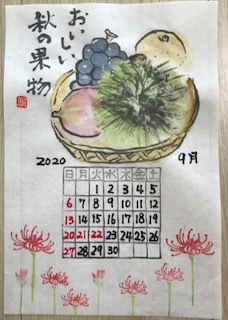 おいしい
秋の果物
2020 9月
日 月 火 水 木 金 土
1 2 3 4 5
6 7 8 9 10 11 12
13 14 15 16 17 18 19
20 21 22 23 24 25 26
27 28 29 30